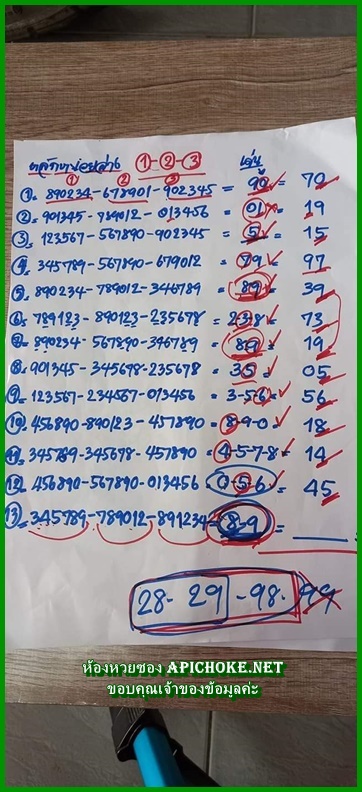 หลักหน่วยล่าง ①-②-③ เด่น
① ② ③
①= 890234-678901-902345 = 90 = 70
②= 901345-789012-013456 = 01 = 19
③= 123567-567890-902345 = 5 = 15
④ 345789-567890-679012 = 79 = 97
⑤ 890234-789012-346789 = 89 = 39
⑥= 789123-890123-235678 = 238 = 73
⑦= 890234-567890-346789 = 89 = 19
⑧= 901345-345678-235678 = 35 = 05
⑨= 123567-234567-013456 = 3-5-6 = 56
⑩ 456890-890123-457890 = 8-9-0 = 18
⑪ 345789-345678-457890 = 4-5-7-8 = 14
⑫ 456890-567890-013456 = 0-5-6 = 45
⑬= 345789-789012-891234- 8-9 =
28-29-98. 99
ห้องหวยซอง APICHOKE.NET
ขอบคุณเจ้าของข้อมูลค่ะ